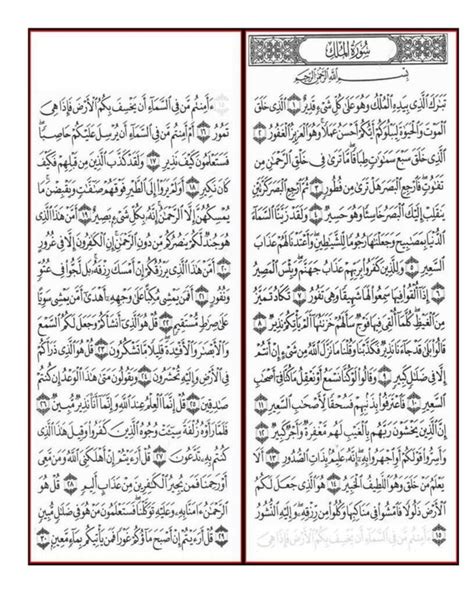 سُورَةُ المُلْكِ
بِسْمِ اللَّهِ الرَّحْمَٰنِ الرَّحِيمِ
تَبَٰرَكَ الَّذِي بِيَدِهِ الْمُلْكُ وَهُوَ عَلَىٰ كُلِّ شَيْءٍ قَدِيرٌ ١ الَّذِي خَلَقَ
الْمَوْتَ وَالْحَيَوٰةَ لِيَبْلُوَكُمْ أَيُّكُمْ أَحْسَنُ عَمَلًا وَهُوَ الْعَزِيزُ الْغَفُورُ ٢
الَّذِي خَلَقَ سَبْعَ سَمَٰوَٰتٍ طِبَاقًا مَّا تَرَىٰ فِي خَلْقِ الرَّحْمَٰنِ مِن
تَفَٰوُتٍ فَارْجِعِ الْبَصَرَ هَلْ تَرَىٰ مِن فُطُورٍ ٣ ثُمَّ ارْجِعِ الْبَصَرَ كَرَّتَيْنِ
يَنقَلِبْ إِلَيْكَ الْبَصَرُ خَاسِئًا وَهُوَ حَسِيرٌ ٤ وَلَقَدْ زَيَّنَّا السَّمَاءَ
الدُّنْيَا بِمَصَٰبِيحَ وَجَعَلْنَٰهَا رُجُومًا لِّلشَّيَٰطِينِ وَأَعْتَدْنَا لَهُمْ عَذَابَ
السَّعِيرِ ٥ وَلِلَّذِينَ كَفَرُوا بِرَبِّهِمْ عَذَابُ جَهَنَّمَ وَبِئْسَ الْمَصِيرُ
٦ إِذَا أُلْقُوا فِيهَا سَمِعُوا لَهَا شَهِيقًا وَهِيَ تَفُورُ ٧ تَكَادُ تَمَيَّزُ
مِنَ الْغَيْظِ كُلَّمَا أُلْقِيَ فِيهَا فَوْجٌ سَأَلَهُمْ خَزَنَتُهَا أَلَمْ يَأْتِكُمْ نَذِيرٌ ٨
قَالُوا بَلَىٰ قَدْ جَاءَنَا نَذِيرٌ فَكَذَّبْنَا وَقُلْنَا مَا نَزَّلَ اللَّهُ مِن شَيْءٍ إِنْ أَنتُمْ
إِلَّا فِي ضَلَٰلٍ كَبِيرٍ ٩ وَقَالُوا لَوْ كُنَّا نَسْمَعُ أَوْ نَعْقِلُ مَا كُنَّا فِي أَصْحَٰبِ
السَّعِيرِ ١٠ فَاعْتَرَفُوا بِذَنبِهِمْ فَسُحْقًا لِّأَصْحَٰبِ السَّعِيرِ ١١
إِنَّ الَّذِينَ يَخْشَوْنَ رَبَّهُم بِالْغَيْبِ لَهُم مَّغْفِرَةٌ وَأَجْرٌ كَبِيرٌ ١٢
وَأَسِرُّوا قَوْلَكُمْ أَوِ اجْهَرُوا بِهِ إِنَّهُ عَلِيمٌ بِذَاتِ الصُّدُورِ ١٣ أَلَا
يَعْلَمُ مَنْ خَلَقَ وَهُوَ اللَّطِيفُ الْخَبِيرُ ١٤ هُوَ الَّذِي جَعَلَ لَكُمُ
الْأَرْضَ ذَلُولًا فَامْشُوا فِي مَنَاكِبِهَا وَكُلُوا مِن رِّزْقِهِ وَإِلَيْهِ النُّشُورُ
١٥ ءَأَمِنتُم مَّن فِي السَّمَاءِ أَن يَخْسِفَ بِكُمُ الْأَرْضَ فَإِذَا هِيَ
ءَأَمِنتُم مَّن فِي السَّمَاءِ أَن يَخْسِفَ بِكُمُ الْأَرْضَ فَإِذَا هِيَ
تَمُورُ ١٦ أَمْ أَمِنتُم مَّن فِي السَّمَاءِ أَن يُرْسِلَ عَلَيْكُمْ حَاصِبًا
فَسَتَعْلَمُونَ كَيْفَ نَذِيرِ ١٧ وَلَقَدْ كَذَّبَ الَّذِينَ مِن قَبْلِهِمْ فَكَيْفَ
كَانَ نَكِيرِ ١٨ أَوَلَمْ يَرَوْا إِلَى الطَّيْرِ فَوْقَهُمْ صَٰفَّٰتٍ وَيَقْبِضْنَ مَا
يُمْسِكُهُنَّ إِلَّا الرَّحْمَٰنُ إِنَّهُ بِكُلِّ شَيْءٍ بَصِيرٌ ١٩ أَمَّنْ هَٰذَا الَّذِي
هُوَ جُندٌ لَّكُمْ يَنصُرُكُم مِّن دُونِ الرَّحْمَٰنِ إِنِ الْكَٰفِرُونَ إِلَّا فِي غُرُورٍ
٢٠ أَمَّنْ هَٰذَا الَّذِي يَرْزُقُكُمْ إِنْ أَمْسَكَ رِزْقَهُ بَل لَّجُّوا فِي عُتُوٍّ
وَنُفُورٍ ٢١ أَفَمَن يَمْشِي مُكِبًّا عَلَىٰ وَجْهِهِ أَهْدَىٰ أَمَّن يَمْشِي سَوِيًّا
عَلَىٰ صِرَٰطٍ مُّسْتَقِيمٍ ٢٢ قُلْ هُوَ الَّذِي أَنشَأَكُمْ وَجَعَلَ لَكُمُ السَّمْعَ
وَالْأَبْصَٰرَ وَالْأَفْئِدَةَ قَلِيلًا مَّا تَشْكُرُونَ ٢٣ قُلْ هُوَ الَّذِي ذَرَأَكُمْ
فِي الْأَرْضِ وَإِلَيْهِ تُحْشَرُونَ ٢٤ وَيَقُولُونَ مَتَىٰ هَٰذَا الْوَعْدُ إِن كُنتُمْ
صَٰدِقِينَ ٢٥ قُلْ إِنَّمَا الْعِلْمُ عِندَ اللَّهِ وَإِنَّمَا أَنَا نَذِيرٌ مُّبِينٌ ٢٦
فَلَمَّا رَأَوْهُ زُلْفَةً سِيئَتْ وُجُوهُ الَّذِينَ كَفَرُوا وَقِيلَ هَٰذَا الَّذِي
كُنتُم بِهِ تَدَّعُونَ ٢٧ قُلْ أَرَءَيْتُمْ إِنْ أَهْلَكَنِيَ اللَّهُ وَمَن مَّعِيَ
أَوْ رَحِمَنَا فَمَن يُجِيرُ الْكَٰفِرِينَ مِنْ عَذَابٍ أَلِيمٍ ٢٨ قُلْ هُوَ
الرَّحْمَٰنُ ءَامَنَّا بِهِ وَعَلَيْهِ تَوَكَّلْنَا فَسَتَعْلَمُونَ مَنْ هُوَ فِي ضَلَٰلٍ مُّبِينٍ
٢٩ قُلْ أَرَءَيْتُمْ إِنْ أَصْبَحَ مَاؤُكُمْ غَوْرًا فَمَن يَأْتِيكُم بِمَاءٍ مَّعِينٍ ٣٠